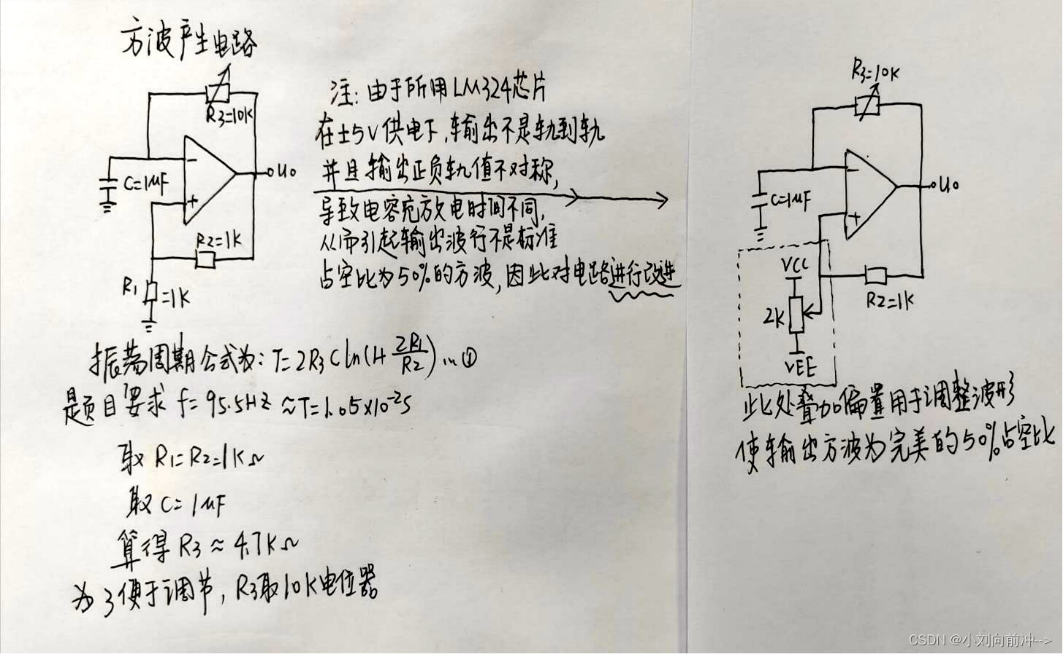 方波产生电路
R3=10K
C=1μF
-
+
Uo
R2=1K
R1
=1K
注:由于所用LM324芯片
在±5V供电下,输出不是轨到轨
并且输出正负轨值不对称,
导致电容充放电时间不同,
从而引起输出波行不是标准
占空比为50%的方波,因此对电路进行改进
振荡周期公式为:T=2R3Cln(1+2R1/R2)…①
题目要求 f=95.5Hz ≈T=1.05×10⁻²s
取 R1=R2=1KΩ
取 C=1μF
算得 R3≈4.7KΩ
为了便于调节,R3取10K电位器
R3=10K
C=1μF
-
+
Uo
R2=1K
VCC
2K
VEE
此处叠加偏置用于调整波形
使输出方波为完美的50%占空比
CSDN @小刘向前冲-->